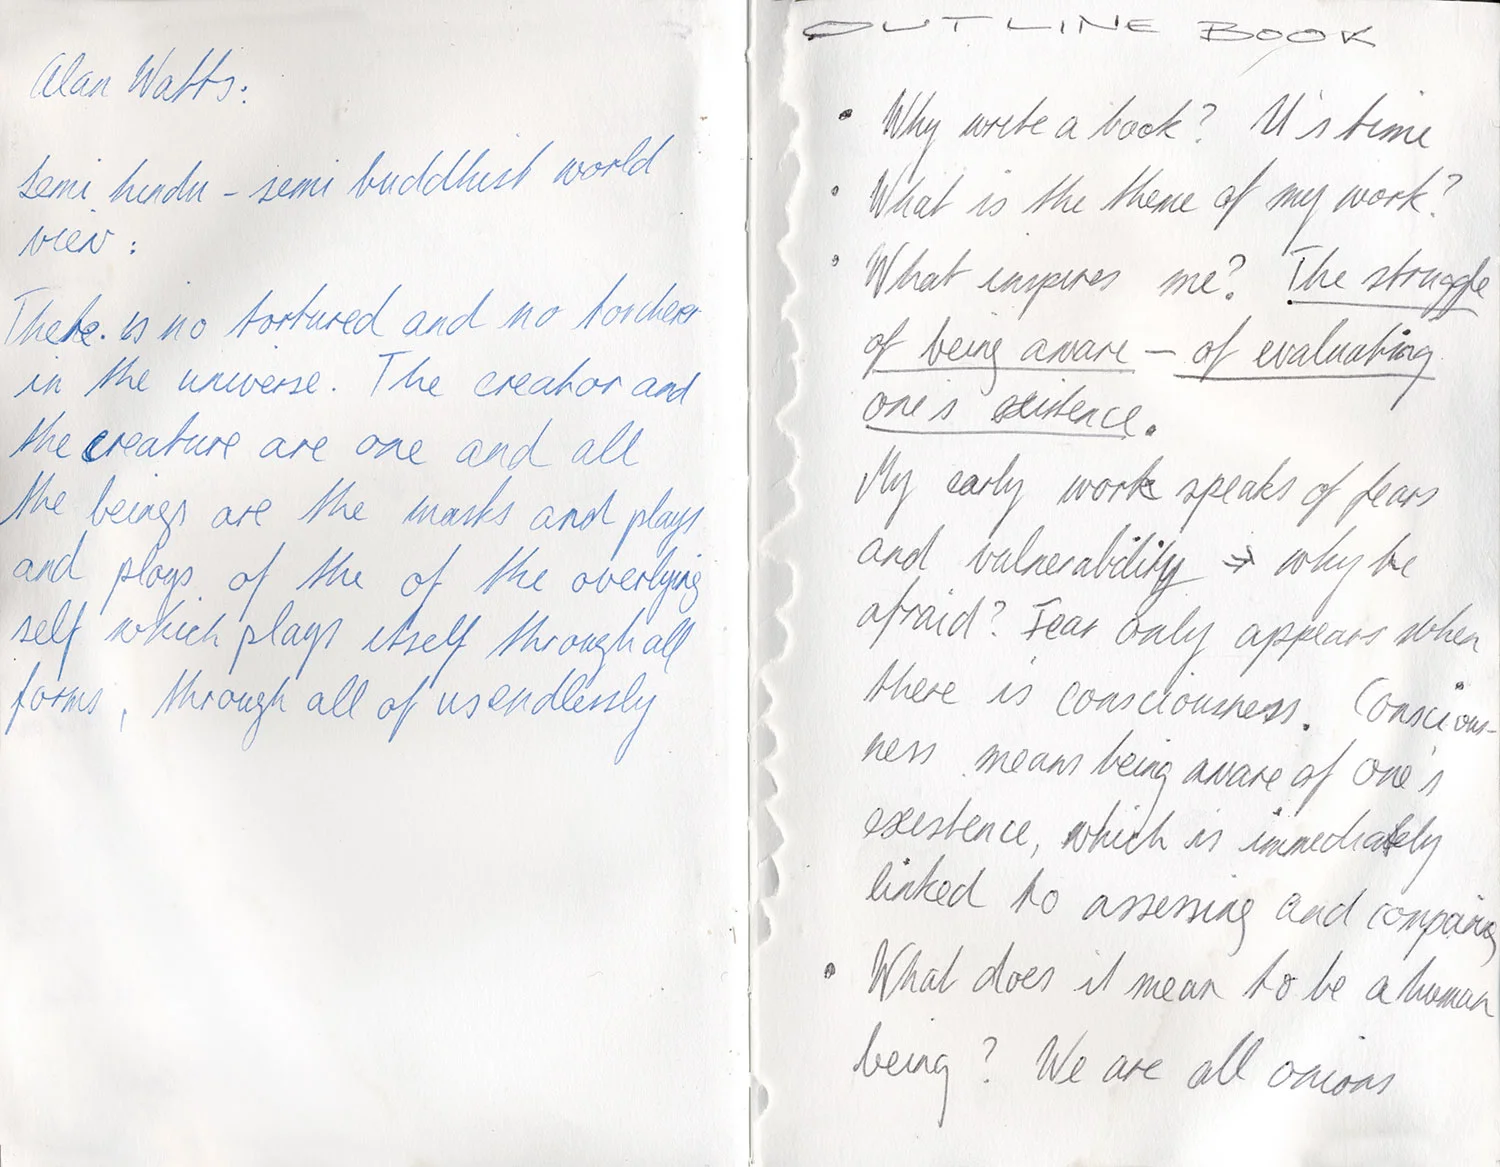 Alan Watts:
semi hindu – semi buddhist world
view :
There is no tortured and no torcherer
in the universe. The creator and
the creature are one and all
the beings are the masks and plays
and plays of the of the overlying
self which plays itself through all
forms, through all of us endlessly
OUTLINE BOOK
• Why write a book? It's time
• What is the theme of my work?
• What inspires me? The struggle
of being aware – of evaluating
one's existence.
My early work speaks of fears
and vulnerability → why be
afraid? Fear only appears when
there is consciousness. Conscious-
ness means being aware of one's
existence, which is immediately
linked to assessing and comparing
• What does it mean to be a human
being? We are all onions